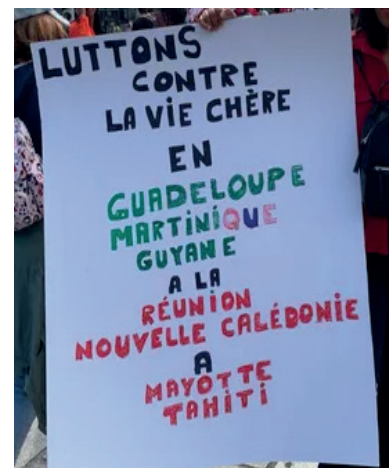 LUTTONS
CONTRE
LA VIE CHÈRE
EN
GUADELOUPE
MARTINIQUE
GUYANE
A LA
RÉUNION
NOUVELLE CALÉDONIE
A
MAYOTTE
TAHITI